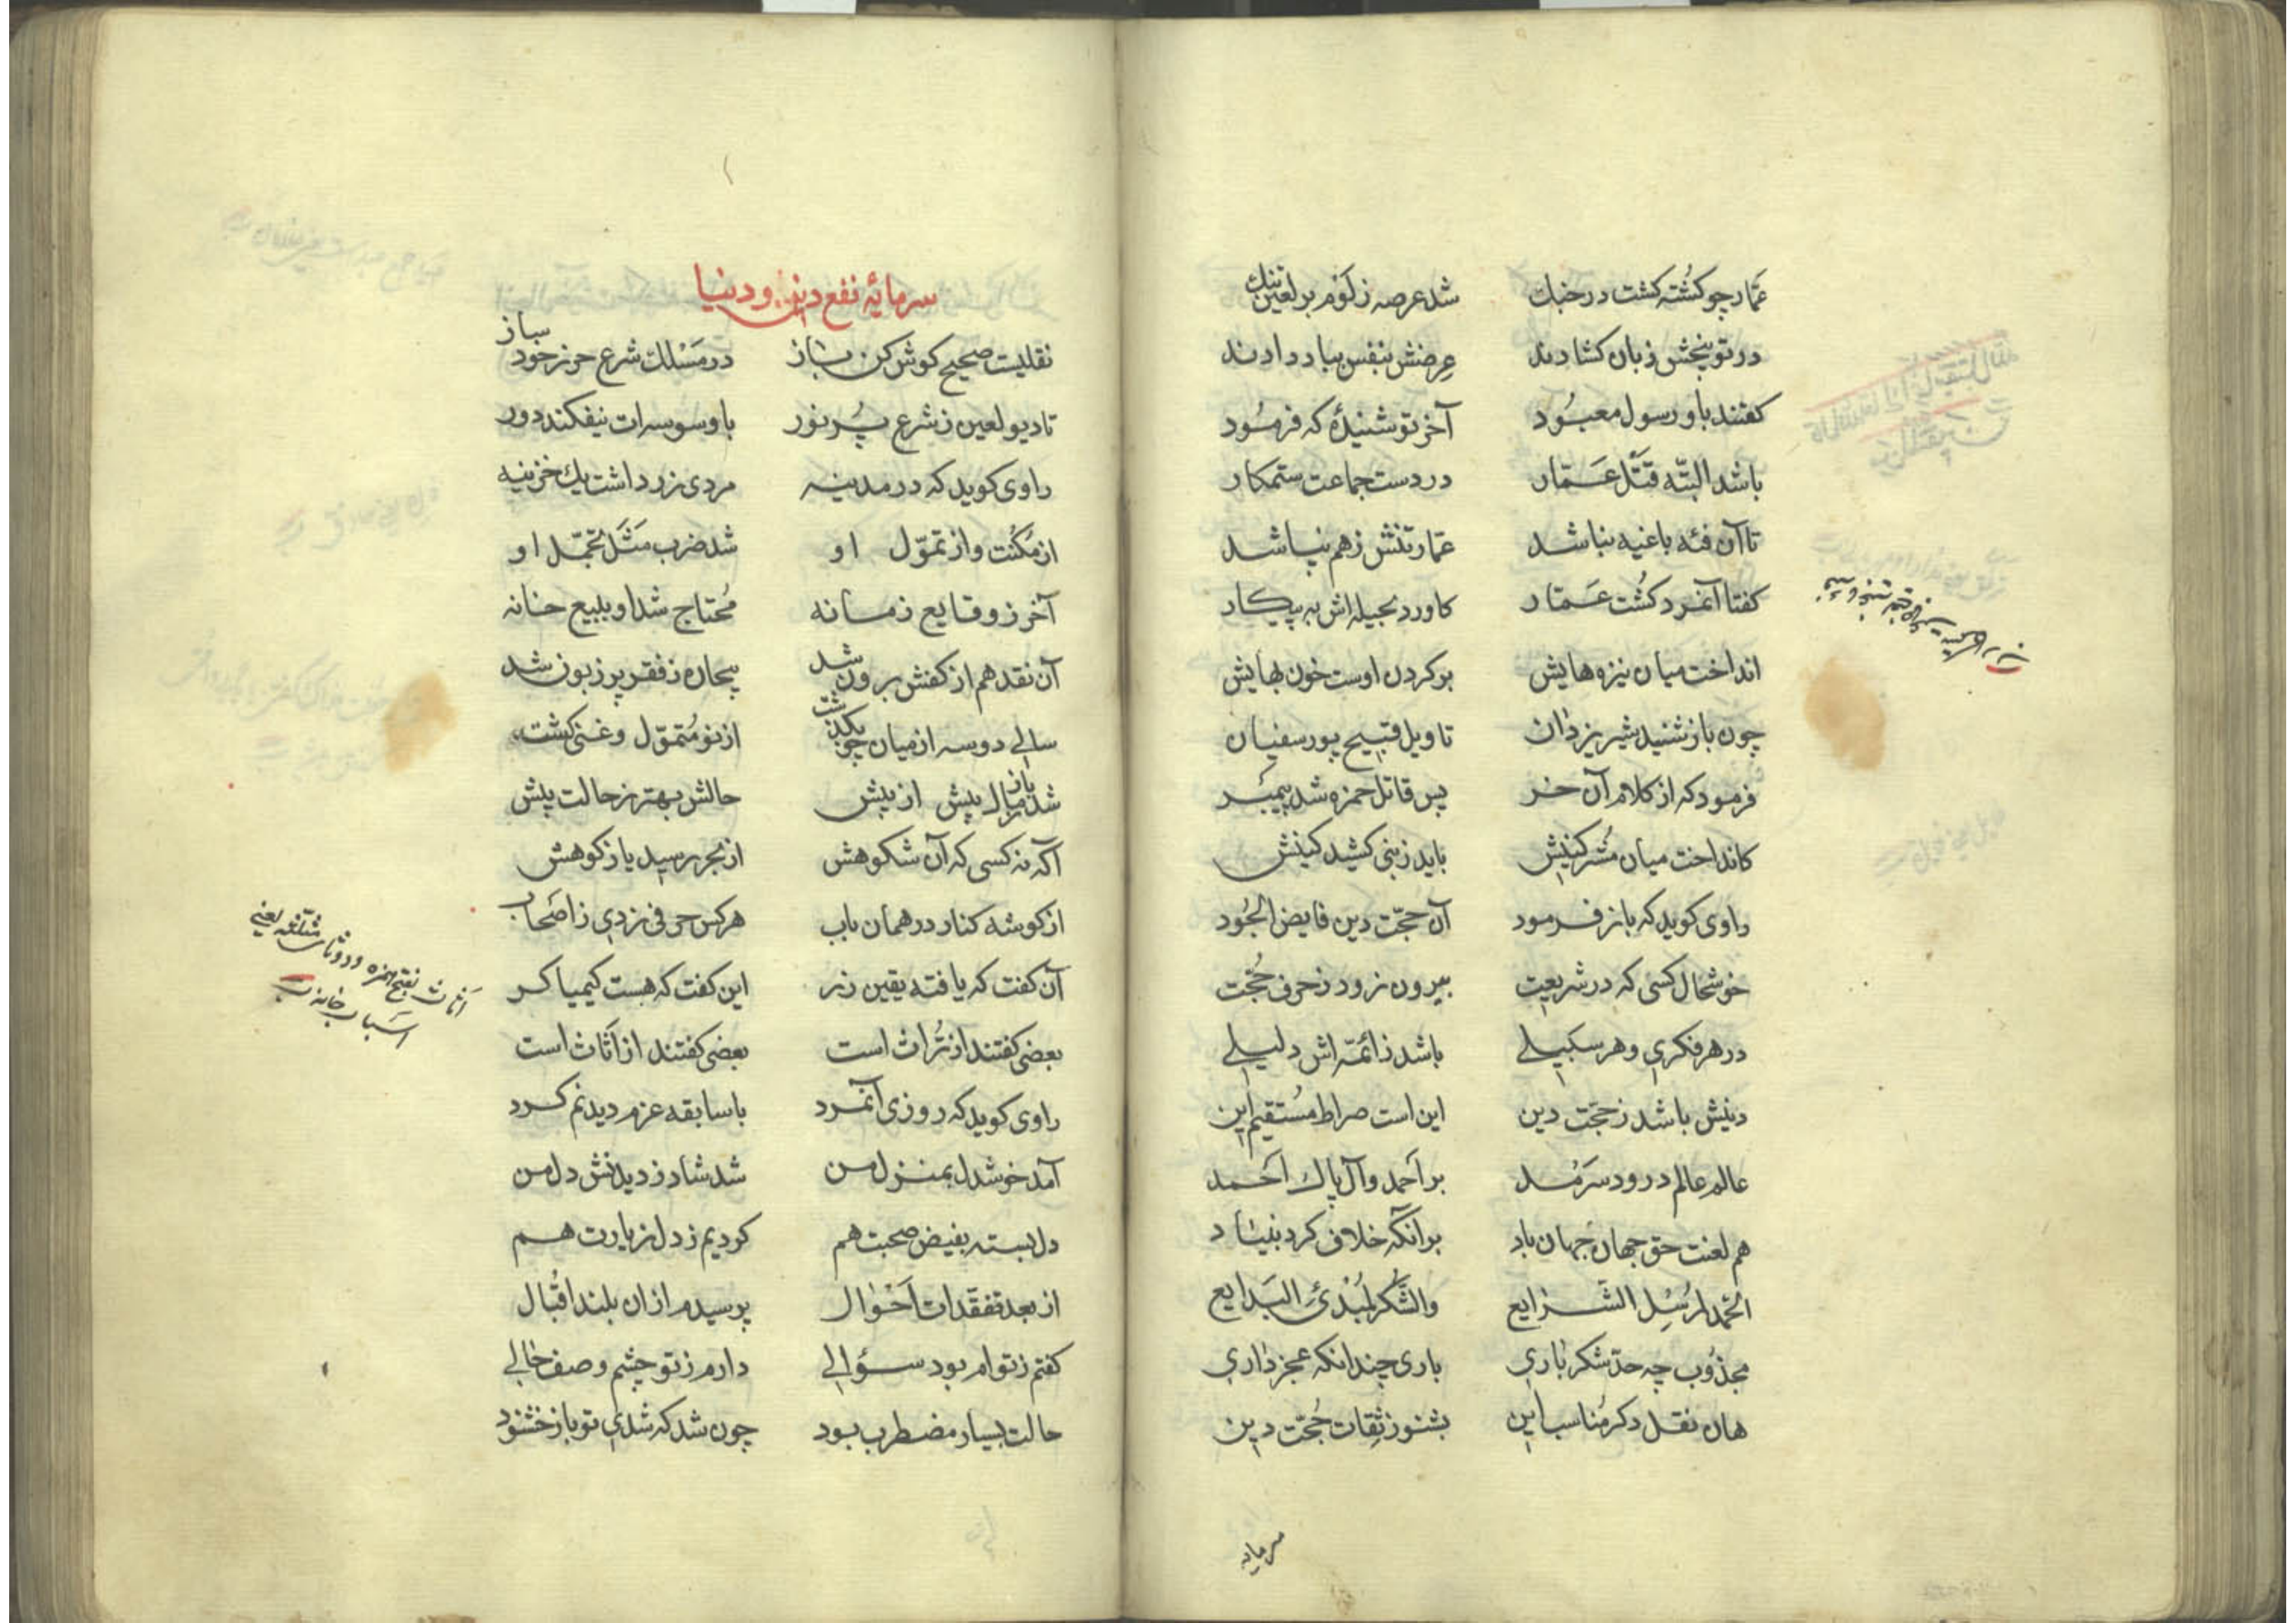 عمّار چو کُشته کشت در جنك شد عرصه ز لَوْم بر لعین تنك
در توبیخش زبان کشادند عِرضش بنفس بباد دادند
کفتند باو رسول معبُود آخر تو شنیدهٔ که فرمُود
باشد البتّه قَتْل عَمّار در دست جماعت ستمکار
تا آن فئه باغیه نباشد عمّار تنش ز هم نپاشد
کفتا آنمرد کُشت عَمّار کاورد بحیله اش به پیکار
انداخت میان نیزه هایش بر کردن اوست خون بهایش
چون باز شنید شیر یزدان تاویل قبیح پور سفیان
فرمود که از کلام آن خر پس قاتل حمزه شد پیمبَر
کانداخت میان مُشرکینش باید ز نبی کشید کینش
راوی کوید که باز فرمود آن حجّت دین فایض الجُود
خوشحال کسی که در شریعت بیرون نرود ز حرف حُجّت
در هر فکری و هر سَبیلی باشد ز ائمّه اش دلیلی
دینش باشد ز حجّت دین این است صراط مُستقیم این
عالم عالم درود سَرمَد بر اَحمد و آل پاك اَحمد
هم لعنت حق جهان جهان باد بر آنکه خلاف کرد بنیاد
الحَمد لمُرسِل الشّرایع والشُّکر لمُبْدِئ البَدایع
مجذُوب چه حدّ شکر باری باری چندانکه عجز داری
هان نقل دکر مُناسب این بشنو ز ثِقات حُجّت دین
سرمایه
سرمایهٔ نفع دین و دنیا
نقلیست صحیح کوش کن باز در مَسْلك شرع حرز خود ساز
تا دیو لعین ز شرع پُر نور با وسوسه ات نیفکند دور
راوی کوید که در مدینه مردی ز زر داشت یك خزینه
از مُکنت و از تموّل او شد ضرب مَثَل تجمّل او
آخر ز وقایع زمانه مُحتاج شد او ببیع خانه
آن نقد هم از کفش برون شد بیچاره ز فقر پر زبون شد
سالی دو سه از میان چو بکذشت از نو مُتموّل و غنی کشت
شد باز مال بیش از پیش حالش بهتر ز حالت پیش
آکه نه کسی که آن شکوهش از بحر رسید یا ز کوهش
از کوشه کنار در همان باب هر کس حرفی زدی ز اصحاب
آن کفت که یافته یقین زر این کفت که هست کیمیاکر
بعضی کفتند از تُراث است بعضی کفتند از اَثاث است
اَثاث بفتح همزه و دو ثاء مثلّثه یعنی
اسباب خانه
راوی کوید که روزی آنمرد با سابقه عزم دیدنم کرد
آمد خوشدل بمنزل من شد شاد ز دیدنش دل من
دل بسته بفیض صحبت هم کردیم ز دل زیارت هم
از بعد تفقّدات اَحْوال پرسیدم از ان بلند اقبال
کفتم ز توام بود سؤالی دارم ز تو چشم وصف حالی
حالت بسیار مضطرب بود چون شد که شدی تو باز خشنود